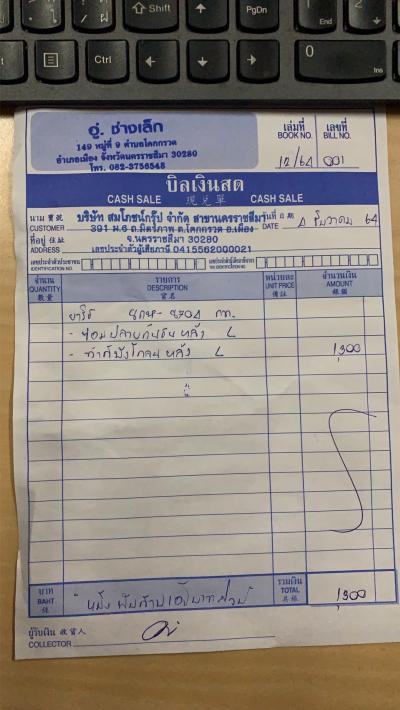 Ctrl
Shift
PgDn
End
0
Ins
อู่. ช่างเล็ก
149 หมู่ที่ 9 ตำบลโคกกรวด
อำเภอเมือง จังหวัดนครราชสีมา 30280
โทร. 082-3756548
เล่มที่ เลขที่
BOOK NO. BILL NO.
12/64 001
บิลเงินสด
CASH SALE 現兌單 CASH SALE
นาม 寶號 บริษัท สมโภชน์กรุ๊ป จำกัด สาขานครราชสีมา วันที่ 日期
CUSTOMER 391 ม.6 ถ.มิตรภาพ ต.โคกกรวด อ.เมือง DATE 4 ธันวาคม 64
ที่อยู่ 住址 จ.นครราชสีมา 30280
ADDRESS เลขประจำตัวผู้เสียภาษี 0415562000021
เลขประจำตัวประชาชน
IDENTIFICATION NO.
เลขประจำตัวผู้เสียภาษี
TAX IDENTIFICATION NO.
จำนวน รายการ หน่วยละ จำนวนเงิน
QUANTITY DESCRIPTION UNIT PRICE AMOUNT
數量 貨名 備註 銀額
ยาริส
- ซ่อมปลายกันชน หลัง L
- ทำสีบังโคลน หลัง L 1,300
บาท รวมเงิน
BAHT TOTAL 1,300
銖 共銀
ผู้รับเงิน 收貨人
COLLECTOR